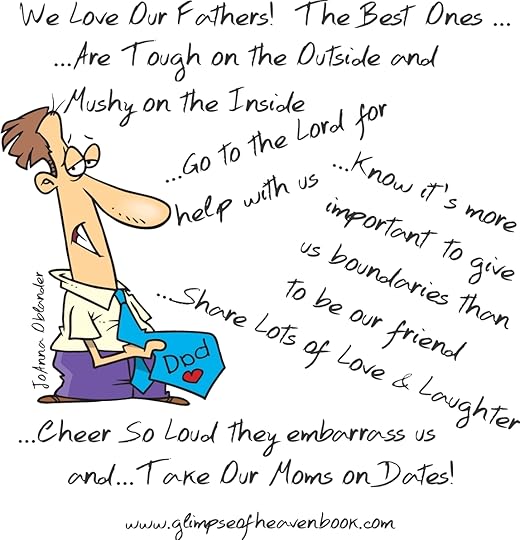 We Love Our Fathers! The Best Ones ...
...Are Tough on the Outside and
Mushy on the Inside
...Go to the Lord for
help with us
...Know it's more
important to give
us boundaries than
to be our friend
...Share Lots of Love & Laughter
Dad
JoAnna Oblander
...Cheer So Loud they embarrass us
and...Take Our Moms on Dates!
www.glimpseofheavenbook.com